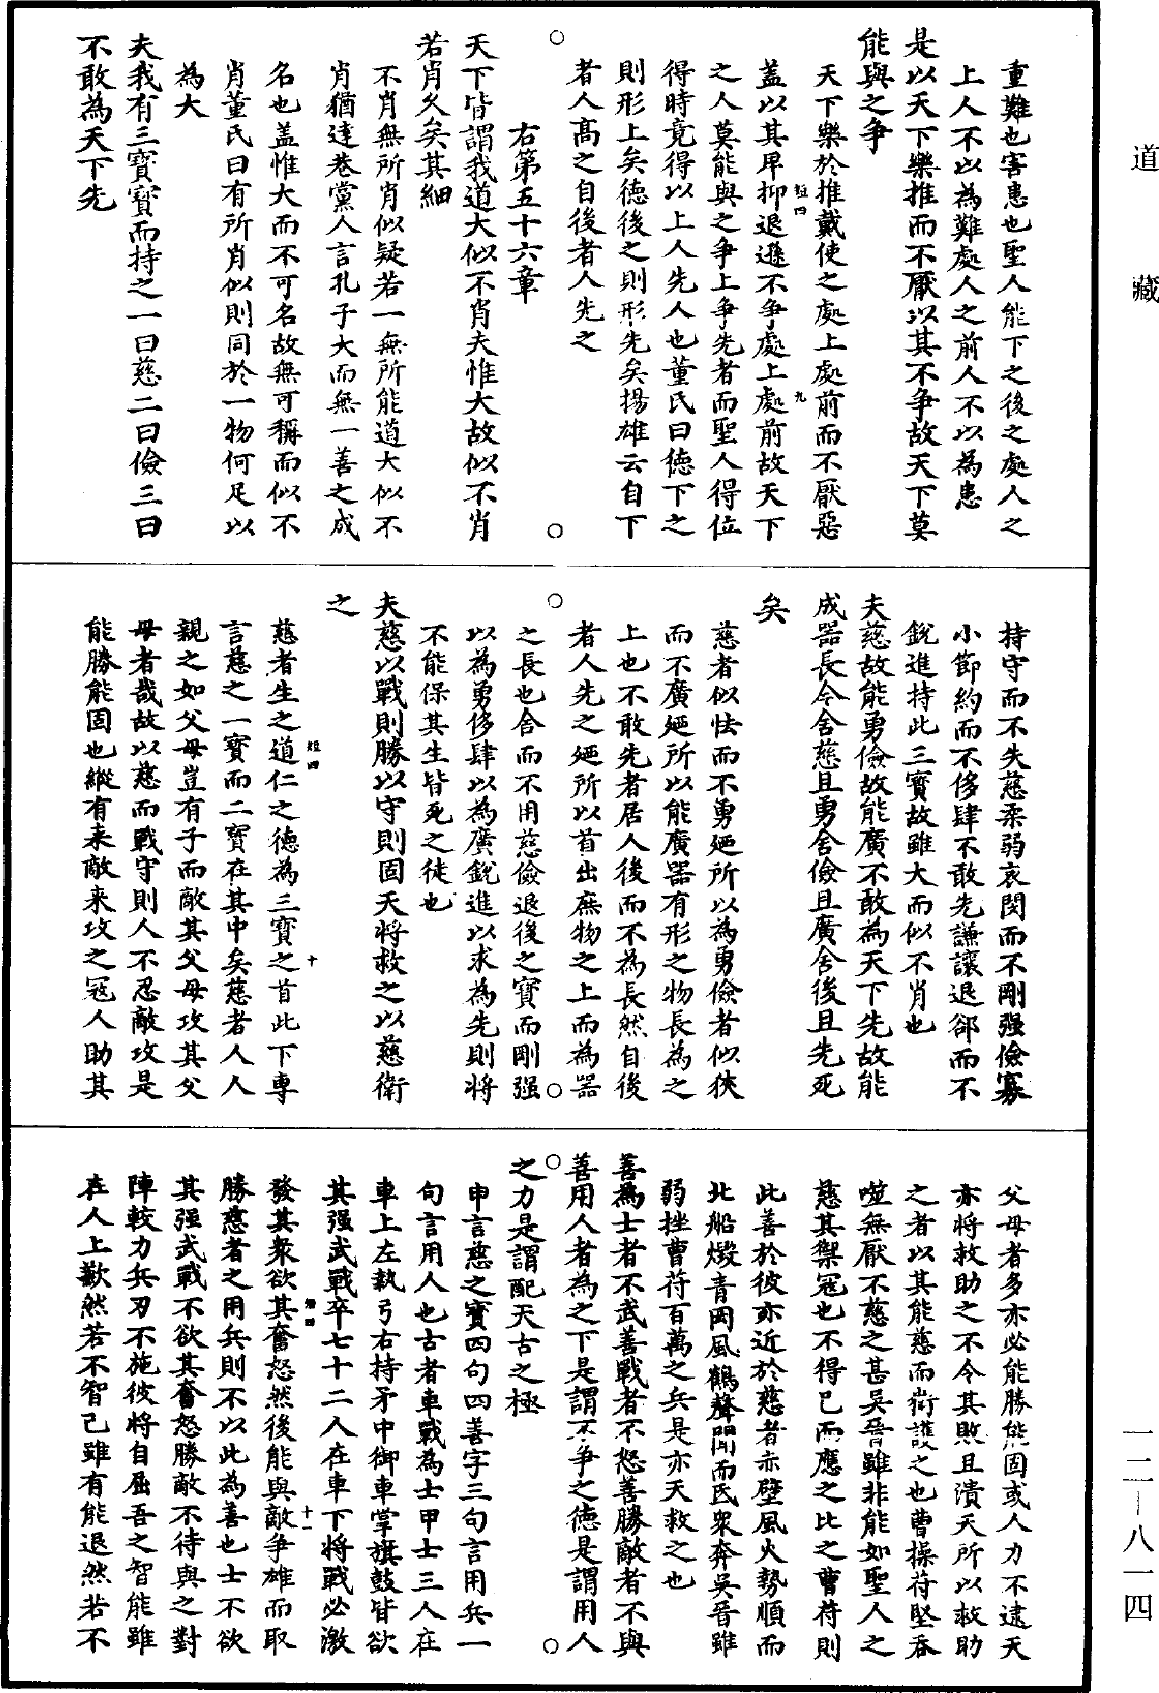 道藏
重難也害患也聖人能下之後之處人之
上人不以為難處人之前人不以為患
是以天下樂推而不厭以其不爭故天下莫
能與之爭
天下樂於推戴使之處上處前而不厭惡
蓋以其卑抑退遜不爭處上處前故天下
之人莫能與之爭上爭先者而聖人得位
得時竟得以上人先人也董氏曰德下之
則形上矣德後之則形先矣揚雄云自下
者人高之自後者人先之
右第五十六章
天下皆謂我道大似不肖夫惟大故似不肖
若肖久矣其細
不肖無所肖似疑若一無所能道大似不
肖猶達巷黨人言孔子大而無一善之成
名也蓋惟大而不可名故無可稱而似不
肖董氏曰有所肖似則同於一物何足以
為大
夫我有三寶寶而持之一曰慈二曰儉三曰
不敢為天下先
持守而不失慈柔弱哀閔而不剛强儉寡
小節約而不侈肆不敢先謙讓退郤而不
銳進持此三寶故雖大而似不肖也
夫慈故能勇儉故能廣不敢為天下先故能
成器長今舍慈且勇舍儉且廣舍後且先死
矣
慈者似怯而不勇廼所以為勇儉者似狹
而不廣廼所以能廣器有形之物長為之
上也不敢先者居人後而不為長然自後
者人先之廼所以首出庶物之上而為器
之長也舍而不用慈儉退後之寶而剛强
以為勇侈肆以為廣銳進以求為先則將
不能保其生皆死之徒也
夫慈以戰則勝以守則固天將救之以慈衛
之
慈者生之道仁之德為三寶之首此下專
言慈之一寶而二寶在其中矣慈者人人
親之如父母豈有子而敵其父母攻其父
母者哉故以慈而戰守則人不忍敵攻是
能勝能固也縱有来敵来攻之冦人助其
父母者多亦必能勝能固或人力不逮天
亦將救助之不令其敗且潰天所以救助
之者以其能慈而衛護之也曹操苻堅吞
噬無厭不慈之甚吳晉雖非能如聖人之
慈其禦冦也不得已而應之比之曹苻則
此善於彼亦近於慈者赤壁風火勢順而
北船燬青岡風鶴聲聞而氐衆奔吳晉雖
弱挫曹苻百萬之兵是亦天救之也
善為士者不武善戰者不怒善勝敵者不與
善用人者為之下是謂不爭之德是謂用人
之力是謂配天古之極
申言慈之寶四句四善字三句言用兵一
句言用人也古者車戰為士甲士三人在
車上左執弓右持矛中御車掌旗鼓皆欲
其强武戰卒七十二人在車下將戰必激
發其衆欲其奮怒然後能與敵爭雄而取
勝慈者之用兵則不以此為善也士不欲
其强武戰不欲其奮怒勝敵不待與之對
陣較力兵刃不施彼將自屈吾之智能雖
在人上歉然若不智己雖有能退然若不
短四
九
短四
十
短四
十一
一二－八一四